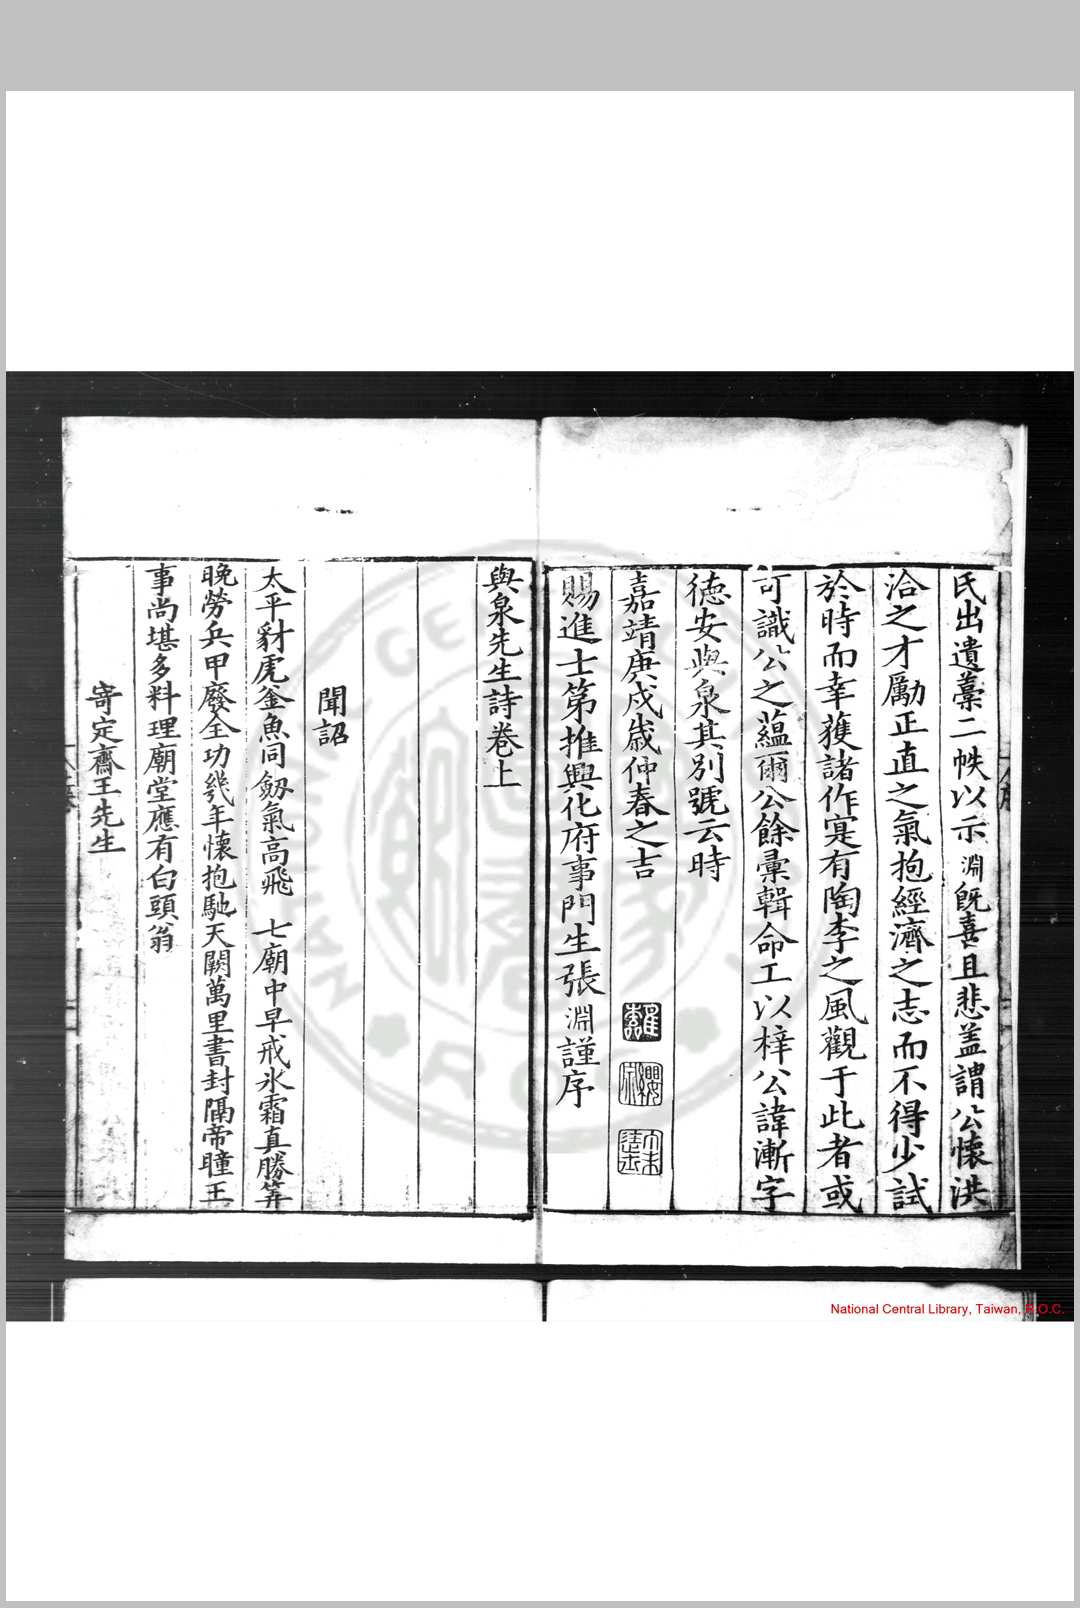 氏出遺藁二帙以示淵旣喜且悲盖謂公懷洪
洽之才勵正直之氣抱經濟之志而不得少試
於時而幸獲諸作寔有陶李之風觀于此者或
可識公之蘊爾公餘彙輯命工以梓公諱漸字
德安與泉其別號云時
嘉靖庚戌歲仲春之吉
賜進士第推興化府事門生張淵謹序
與泉先生詩卷上
聞詔
太平豺虎釜魚同劔氣高飛七廟中早戒氷霜真勝筭
晚勞兵甲廢全功幾年懷抱馳天闕萬里書封隔帝瞳王
事尚堪多料理廟堂應有白頭翁
寄定齋王先生
National Central Library, Taiwan, R.O.C.